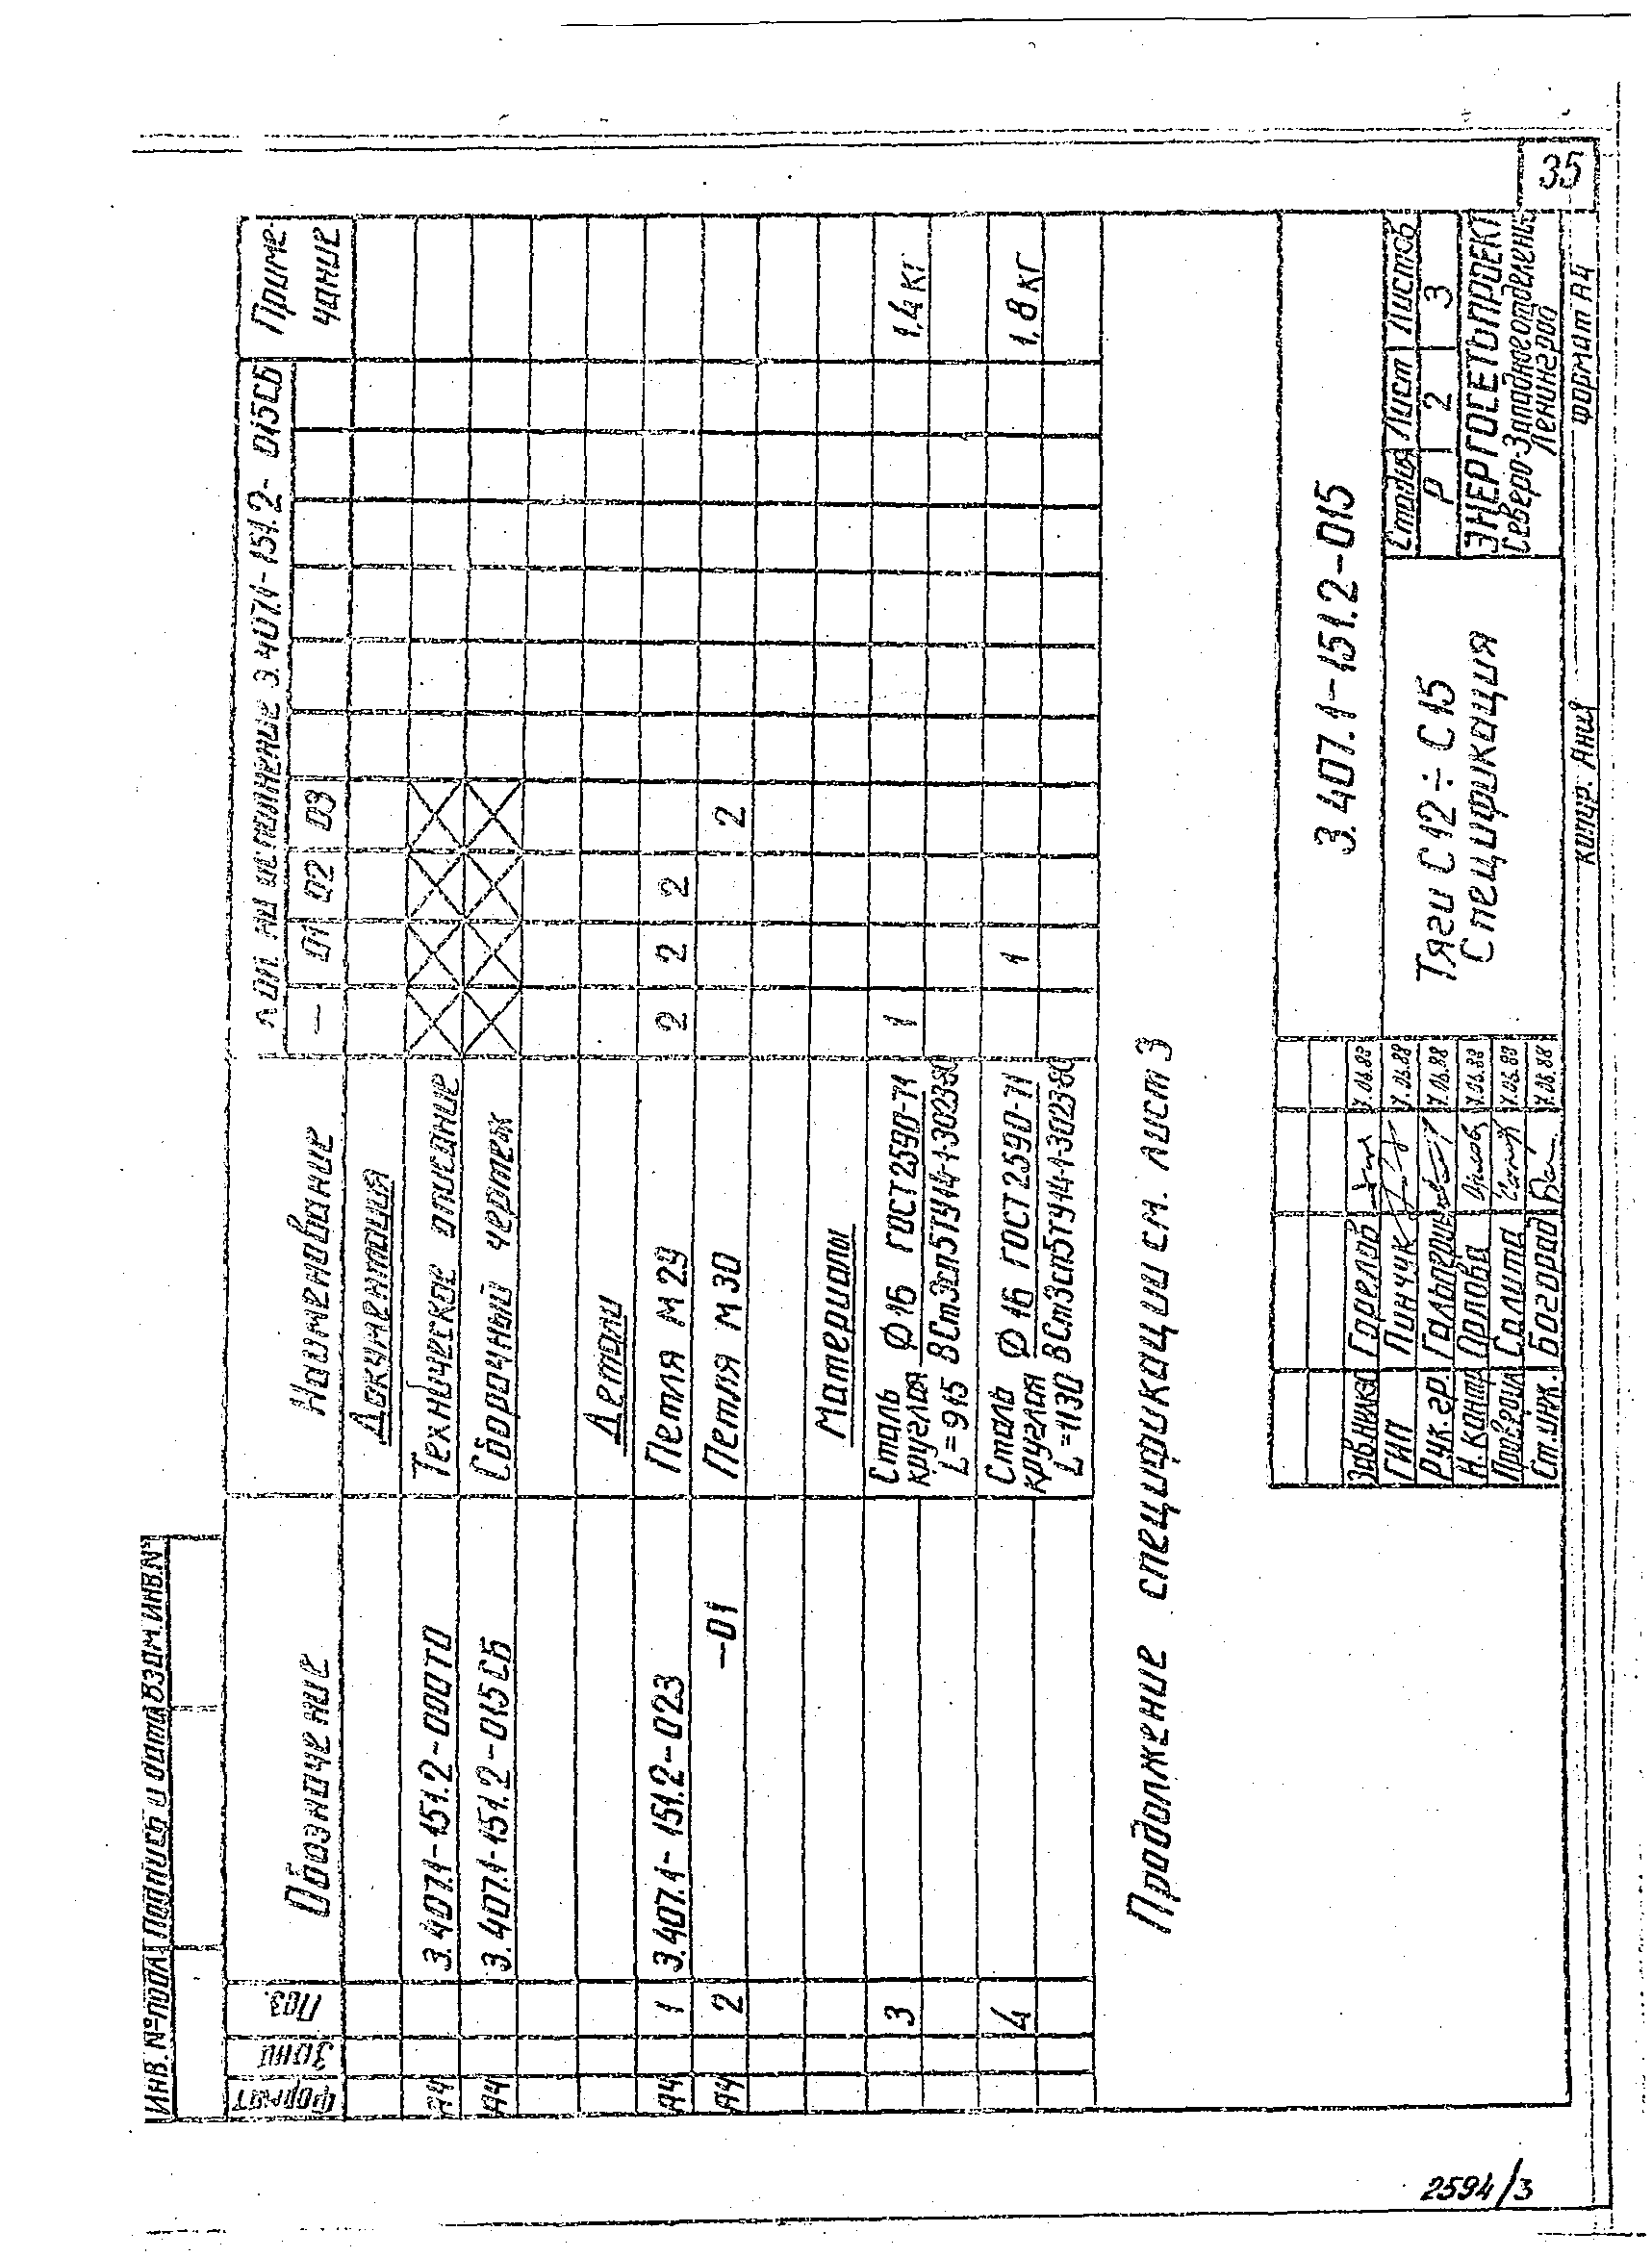 35
Формат Зона Поз. Обозначение Наименование Кол. на исполнение 3.407.1-151.2-015СБ Приме-
чание
— 01 02 03
Документация
А4 3.407.1-151.2-000ТО Техническое описание
А4 3.407.1-151.2-015СБ Сборочный чертеж
Детали
А4 1 3.407.1-151.2-023 Петля М29 2 2 2
А4 2 —01 Петля М30 2
Материалы
3 Сталь круглая Ø16 ГОСТ2590-71 1 1,4 кг
L=915 ВСт3сп5ТУ14-1-3023-80
4 Сталь круглая Ø16 ГОСТ2590-71 1 1,8 кг
L=1130 ВСт3сп5ТУ14-1-3023-80
Продолжение спецификации см. лист 3
3.407.1-151.2-015
Горелов 7.06.88
ГИП Пинчук 7.06.88
Рук.гр. Гальперин 7.06.88
Н.контр Орлова Орлова 7.06.88
Проверил Салита 7.06.88
Ст.инж. Богорад 7.06.88
Тяги С12÷С15
Спецификация
Стадия Лист Листов
Р 2 3
ЭНЕРГОСЕТЬПРОЕКТ
Северо-Западное отделение
Ленинград
копир. Формат А4
Инв.№подл. Подпись и дата Взам.инв.№
2594/3